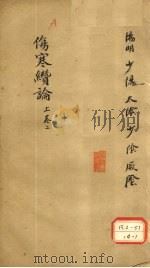 陽明 少陽 太陰 少陰 厥陰
傷寒纘論
上卷二